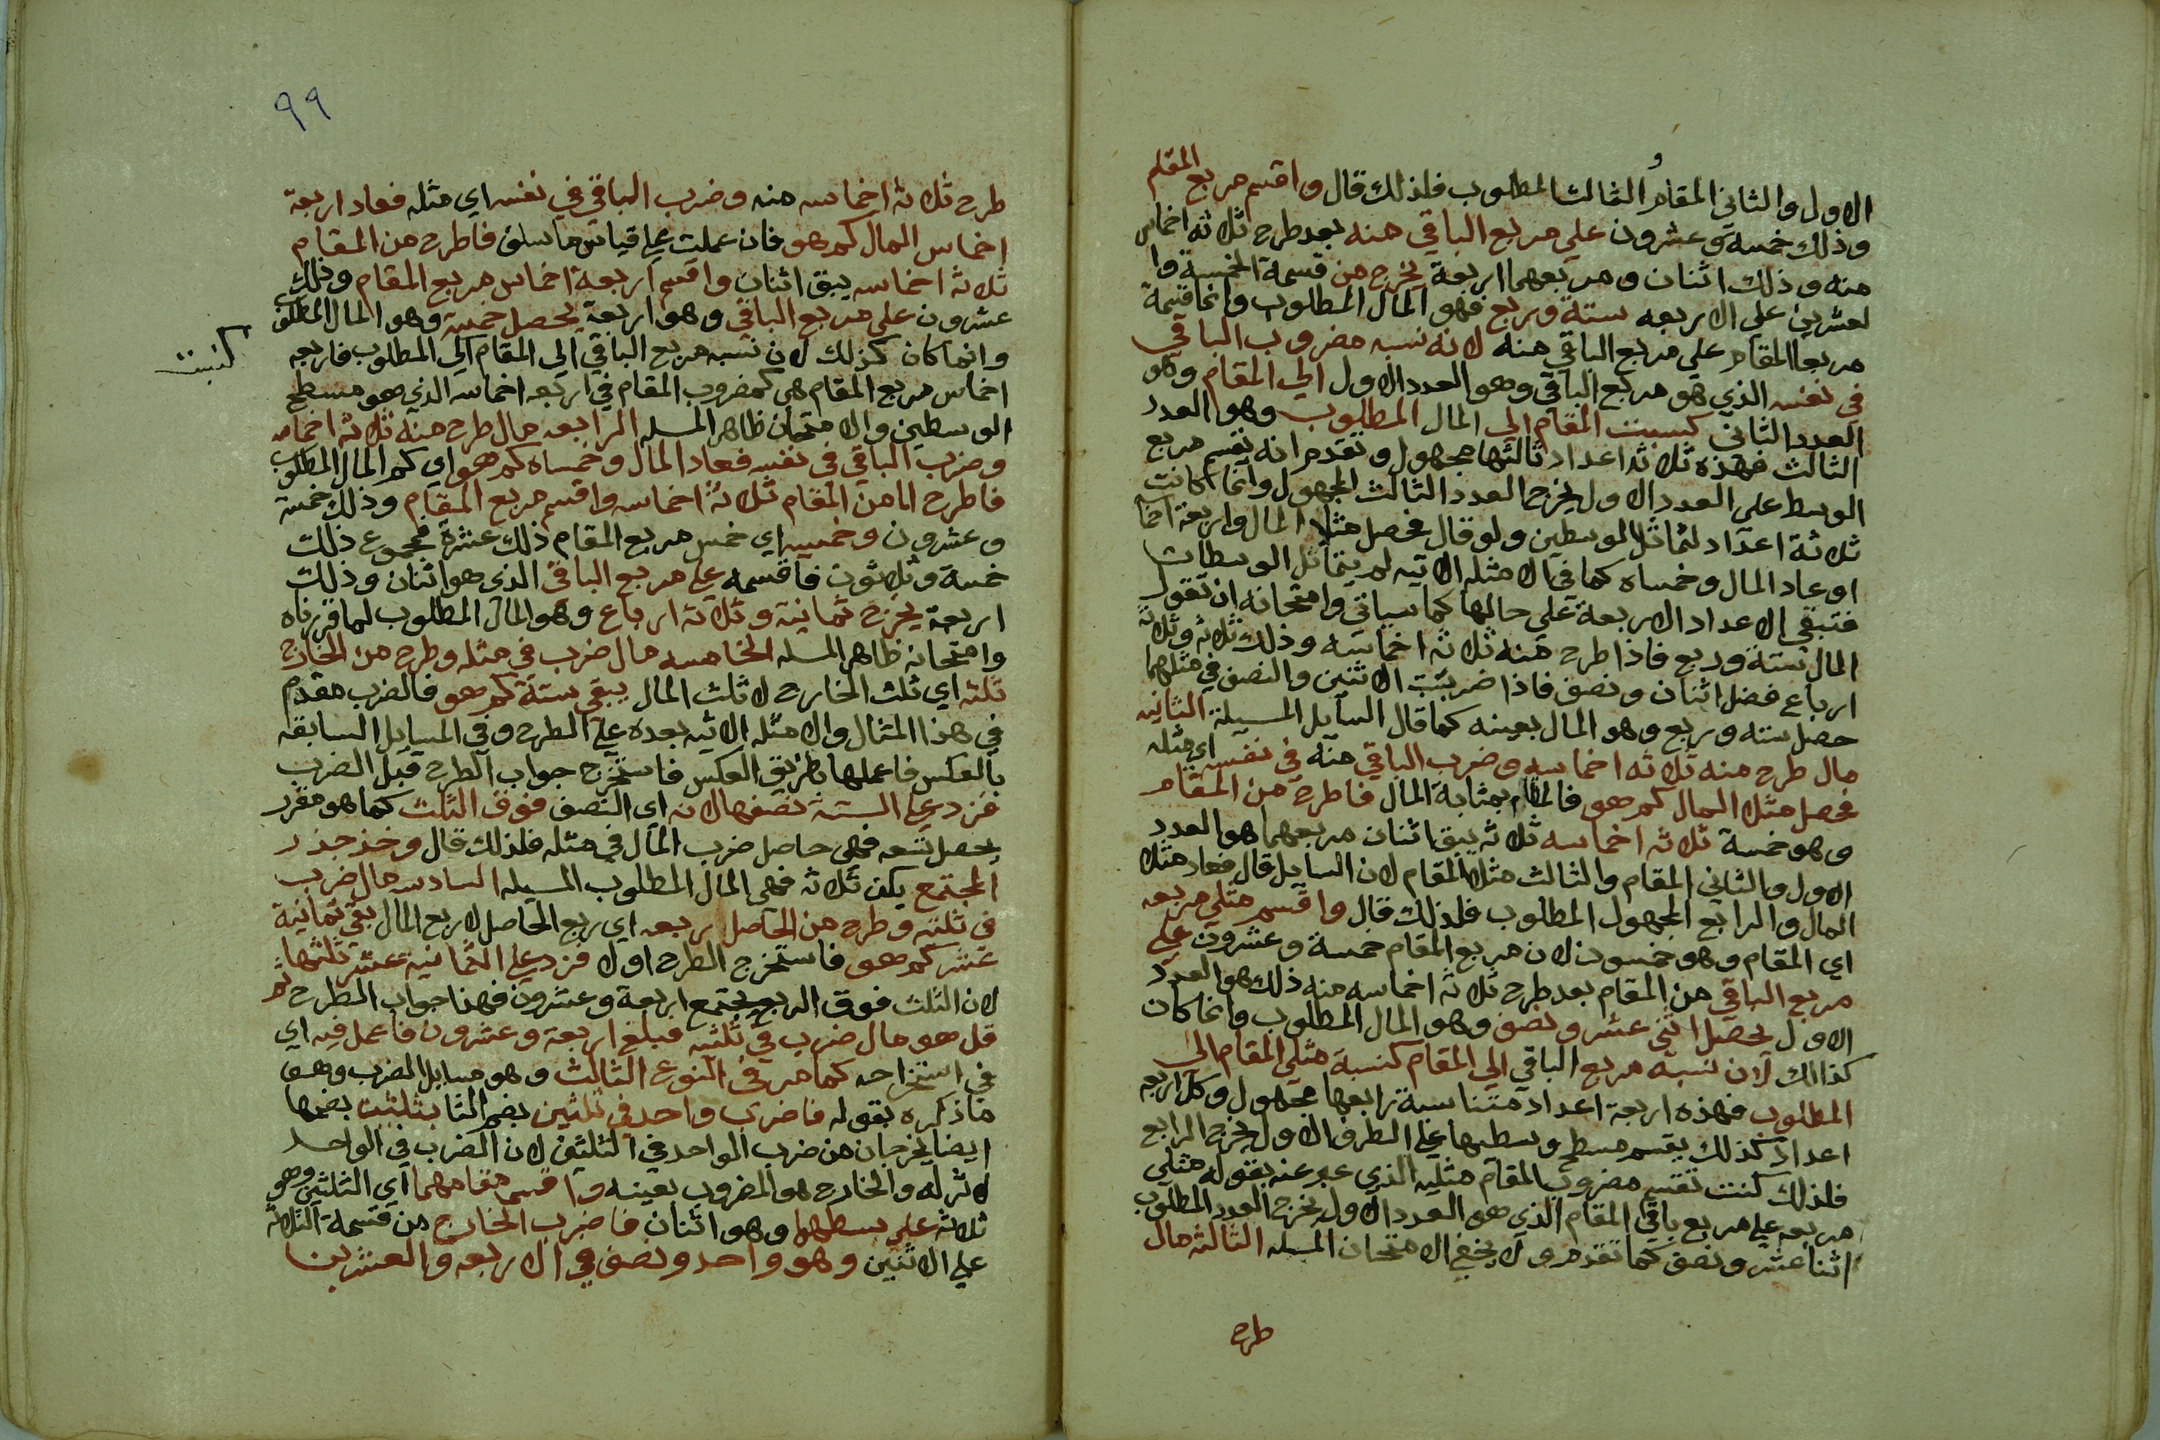 الاول والثاني المقام والثالث المطلوب فلذلك قال واقسم مربع المقام
وذلك خمسة وعشرون علي مربع الباقي منه بعد طرح ثلاثة اخماس
منه وذلك اثنان ومربعهما اربعة يخرج من قسمة الخمسة وا
لعشرين علي الاربعه ستة وربع فهو المال المطلوب وانما قسمة
مربع المقام علي مربع الباقي منه لانه نسبه مضروب الباقي
في نفسه الذي هو مربع الباقي وهو العدد الاول الي المقام وهو
العدد الثاني كنسبت المقام الي المال المطلوب وهو العدد
الثالث فهذه ثلاثة اعداد ثالثها مجهول وتقدم انه يقسم مربع
الوسط علي العدد الاول يخرج العدد الثالث المجهول وانما كانت
ثلاثة اعداد لتماثل الوسطين ولو قال فحصل مثلا المال واربعة اخما
او عاد المال وخمساه كما في الامثله الاتيه لم يتماثل الوسطان
فتبقي الاعداد الاربعة علي حالها كما سياتي وامتحانه ان تقول
المال ستة وربع فاذا طرح منه ثلاثه اخماسه وذلك ثلاثه وثلاثة
ارباع فضل اثنان ونصف فاذا ضربت الاثنين والنصف في مثلهما
حصل سته وربع وهو المال بعينه كما قال السايل المسيلة الثانيه
مال طرح منه ثلاثه اخماسه وضرب الباقي منه في نفسه اي مثله
فحصل مثلا المال كم هو فالمقام بمثابة المال فاطرح من المقام
وهو خمسة ثلاثه اخماسه ثلاثه يبق اثنان مربعهما هو العدد
الاول والثاني المقام والثالث مثلا المقام لان السايل قال فعاد مثلا
المال والرابع المجهول المطلوب فلذلك قال واقسم مثلي مربعه
اي المقام وهو خمسون لان مربع المقام خمسة وعشرون علي
مربع الباقي من المقام بعد طرح ثلاثه اخماسه منه ذلك هو العدد
الاول يحصل اثني عشر ونصف وهو المال المطلوب وانما كان
كذالك لان نسبة مربع الباقي الي المقام كنسبة مثلي المقام الي
المطلوب فهذه اربعة اعداد متناسبة رابعها مجهول وكل اربعه
اعداد كذلك يقسم مسطح وسطيها علي الطرف الاول يخرج الرابع
فلذلك كنت تقسم مضروب المقام مثليه الذي عبر عنه بقوله مثلي
مربعه علي مربع باقي المقام الذي هو العدد الاول يخرج العدد المطلوب
اثنا عشر ونصف كما تقدم ولا يخفي الامتحان المسيله الثالثه مال
طرح
٩٩
طرح ثلاثة اخماسه منه وضرب الباقي في نفسه اي مثله فعاد اربعة
اخماس المال كم هو فان عملت علي قياس ما سلف فاطرح من المقام
ثلاثة اخماسه يبق اثنان واقسم اربعة اخماس مربع المقام وذلك
عشرون علي مربع الباقي وهو اربعة يحصل خمسة وهو المال المطلوب
وانما كان كذلك لان نسبه مربع الباقي الي المقام الي المطلوب فاربعه
كنسبت
اخماس مربع المقام هي كمضروب المقام في اربعه اخماسه الذي هو مسطح
الوسطين والامتحان ظاهر المسله الرابعه مال طرح منه ثلاثه اخماسه
وضرب الباقي في نفسه فعاد المال وخمساه كم هو اي كم المال المطلوب
فاطرح امامن المقام ثلاثة اخماسه واقسم مربع المقام وذلك خمسة
وعشرون وخمسيه اي خمس مربع المقام ذلك عشرة مجموع ذلك
خمسة وثلاثون فاقسمه علي مربع الباقي الذي هو اثنان وذلك
اربعة يخرج ثمانية وثلاثة ارباع وهو المال المطلوب لما قررناه
وامتحانه ظاهر المسله الخامسه مال ضرب في مثله وطرح من الخارج
ثلثه اي ثلث الخارج لا ثلث المال يبقي ستة كم هو فالضرب مقدم
في هذا المثال والامثله الاتيه بعده علي الطرح وفي المسايل السابقه
بالعكس فاعملها بطريق العكس فاستخرج جواب الطرح قبل الضرب
فزد علي الستة نصفها لانه اي النصف فوق الثلث كما هو مقرر
يحصل تسعه فهي حاصل ضرب المال في مثله فلذلك قال وخذ جذر
المجتمع يكن ثلاثه فهي المال المطلوب المسيله السادسه مال ضرب
في ثلثه وطرح من الحاصل ربعه اي ربع الحاصل لا ربع المال بقي ثمانية
عشر كم هو فاستخرج الطرح اولا فزد علي الثمانية عشر ثلثها
لان الثلث فوق الربع يجتمع اربعة وعشرون فهذا جواب الطرح ثم
قل هو مال ضرب في ثلثه فبلغ اربعة وعشرون فاعمل فيه اي
في استخراجه كما مر في النوع الثالث وهو مسايل الضرب وهو
ما ذكره بقوله فاضرب واحد في ثلثين بضم الثا بثلثين بضمها
ايضا يخرجان من ضرب الواحد في الثلثين لان الضرب في الواحد
لا اثر له والخارج هو المضروب بعينه واقسم مقامهما اي الثلثين وهو
ثلاثه علي بسطهما وهو اثنان فاضرب الخارج من قسمة الثلاثه
علي الاثنين وهو واحد ونصف في الاربعه والعشرين